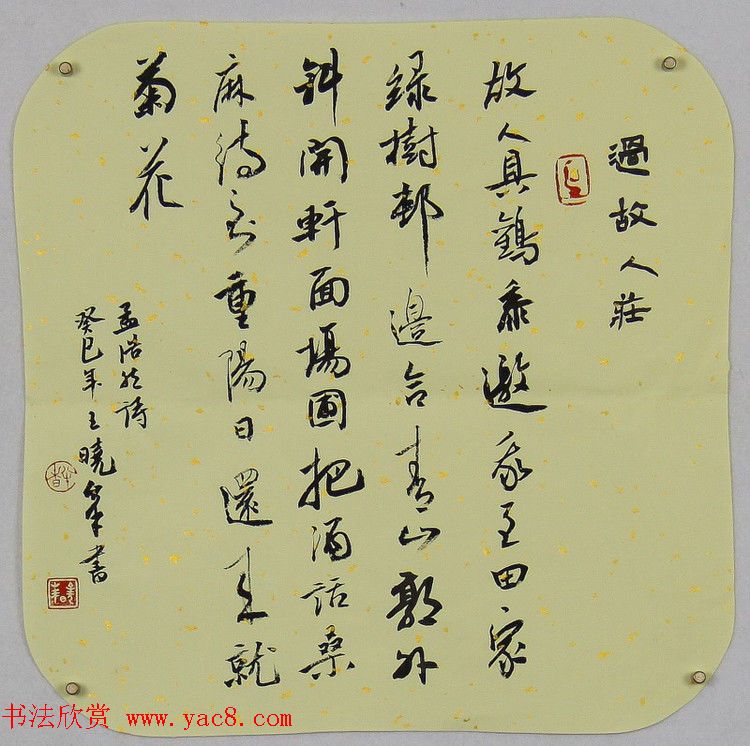 過故人莊
故人具鷄黍邀我至田家
綠樹邨邊合青山郭外
斜開軒面場圃把酒話桑
麻待到重陽日還來就
菊花
孟浩然詩
癸巳年王曉軍書
书法欣赏 www.yac8.com